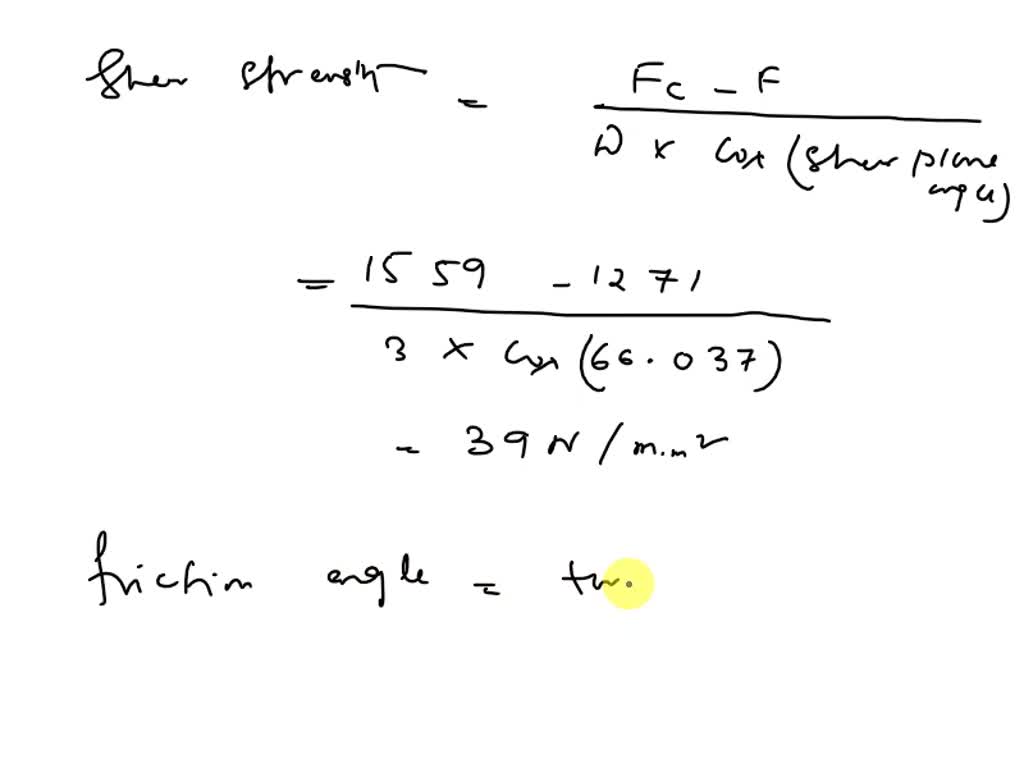 Shear strength = Fc - F
W x Cos (Shear plane
angle)
= 1559 - 1271
3 x Cos (66.037)
= 39 N/m.m²
friction angle =